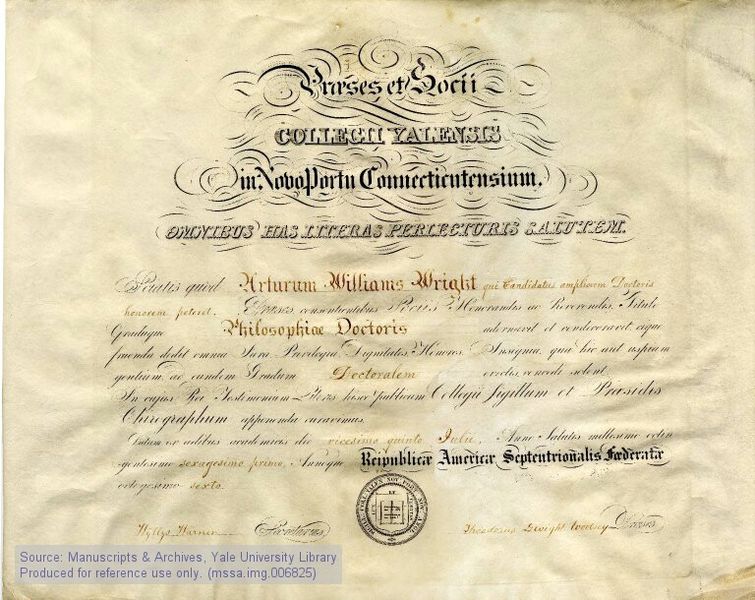 Præses et Socii
COLLEGII YALENSIS
in Novo Portu Connecticutensium.
OMNIBUS HAS LITERAS PERLECTURIS SALUTEM.
Sciatis quod Arturum Williams Wright qui Candidatus ampliorem Doctoris
honorem peteret, Præses consentientibus Sociis Honorandis ac Reverendis, Titulo
Graduque Philosophiæ Doctoris admovit et condecoravit eique
fruenda dedit omnia Jura, Privilegia, Dignitates, Honores, Insignia, quæ hic aut uspiam
gentium, ac eundem Gradum Doctoralem evectis, concedi solent.
In cujus Rei Testimonium Literis hisce publicum Collegii Sigillum et Præsidis
Chirographum apponenda curavimus.
Datum ex ædibus academicis die vicesimo quinto Julii, Anno Salutis millesimo octin
gentesimo sexagesimo primo, Annoque Reipublicæ Americæ Septentrionalis Fœderatæ
octogesimo sexto.
Wyllys Warner Secretarius Theodorus Dwight Woolsey Præses
Source: Manuscripts & Archives, Yale University Library
Produced for reference use only. (mssa.img.006825)